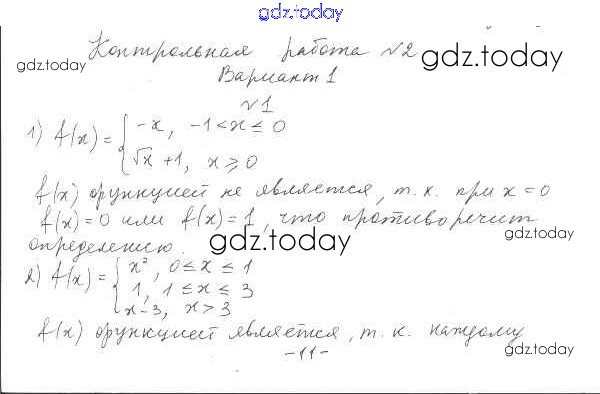 gdz.today
Контрольная работа №2
gdz.today
gdz.today
Вариант 1
№1
1) f(x) = { -x, -1 < x ≤ 0
√x + 1, x ≥ 0
f(x) функцией не является, т.к. при x = 0
f(x) = 0 или f(x) = 1, что противоречит
определению.
gdz.today
gdz.today
2) f(x) = { x², 0 ≤ x ≤ 1
1, 1 ≤ x ≤ 3
x - 3, x > 3
f(x) функцией является, т.к. каждому
-11-
gdz.today